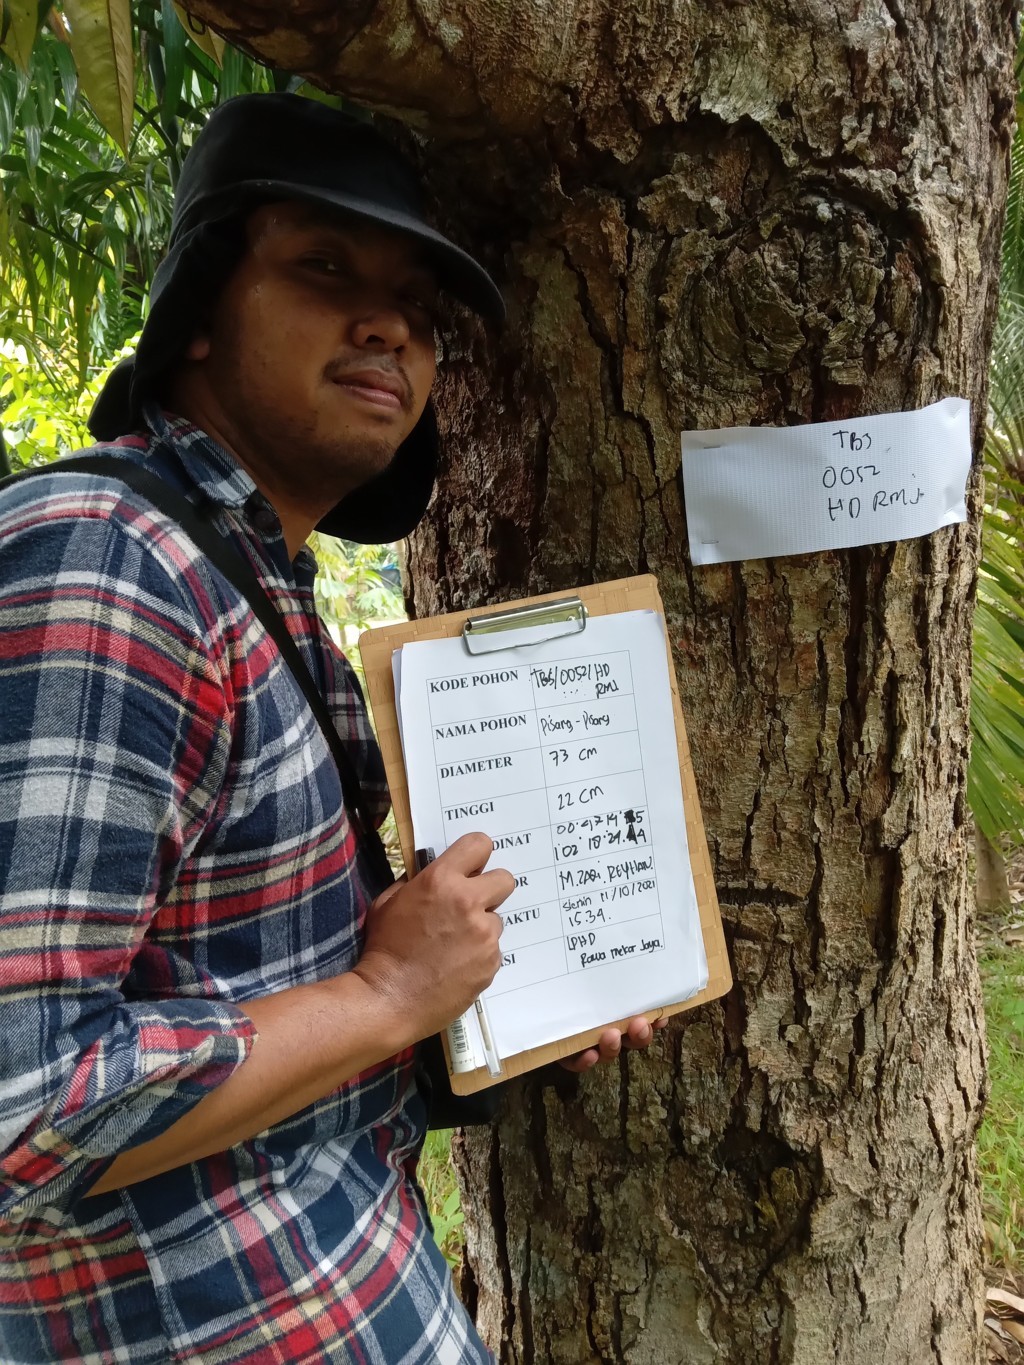 TBS
0052
HD RMJ
KODE POHON TBS/0052/HD
RMJ
NAMA POHON Pisang-Pisang
DIAMETER 73 cm
TINGGI 22 cm
DINAT
102° 18' 24.
OR M. ZAKI. REYHAN
AKTU Senin 11/10/2021
15.34.
SI LPHD
Rawa mekar Jaya.